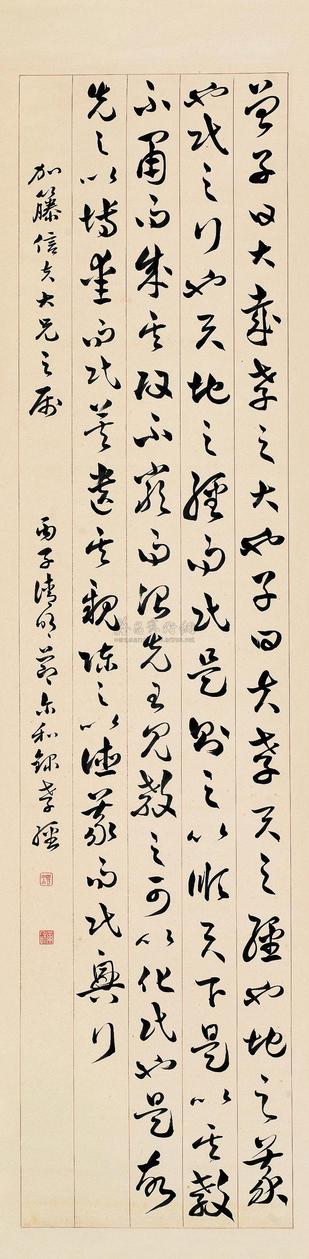 曾子曰大哉孝之大也子曰夫孝天之經也地之義
也民之行也天地之經而民是則之以順天下是以其教
不肅而成其政不嚴而治先王見教之可以化民也是故
先之以博愛而民莫遺其親陳之以德義而民興行
加藤信夫大兄之屬 丙子清明節尔和錄孝經